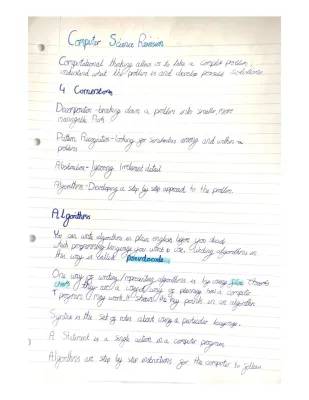 Computer Science Revision
Computational thinking allows us to take a complex problem,
understand what the problem is and develop possible solutions.
4 Cornerstones
Decomposition - breaking down a problem into smaller, more
manageable Parts
Pattern Recognition - looking for similarities among and within
problems
Abstraction - Ignoring irrelevent detail
Algorithms - Developing a step by step approach to the problem.
Algorithms
You can write algorithms in plain english before you decide
which programming language you want to use. Writing algorithms in
this way is called pseudocode
One way of writing/representing algorithms is by using flow
charts
program
Syntax is the set of rules about using a particular language.
A Statement is a single action in a computer program
Algorithms are step by step instructions for the computer to follow